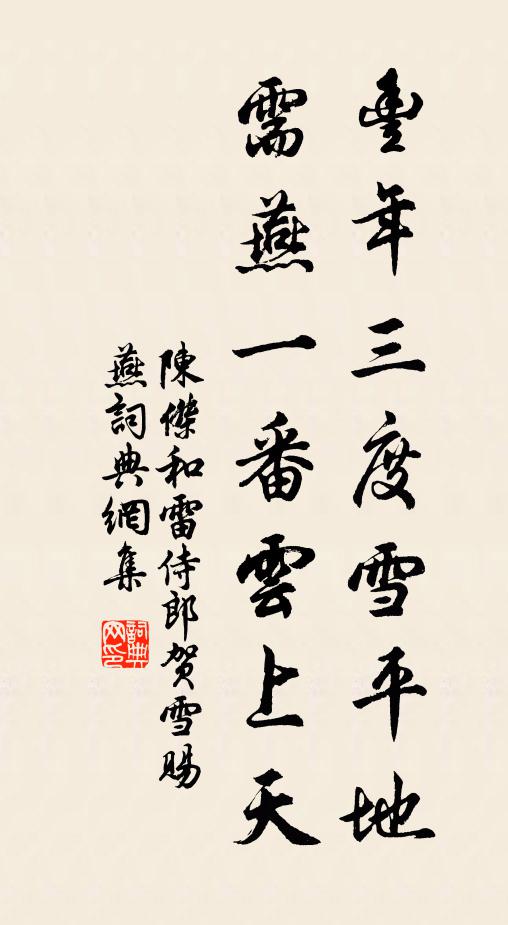 豐年三度雪平地
需燕一番雲上天
陳傑和雷侍郎賀雪賜
燕詞典網集
詞典网印